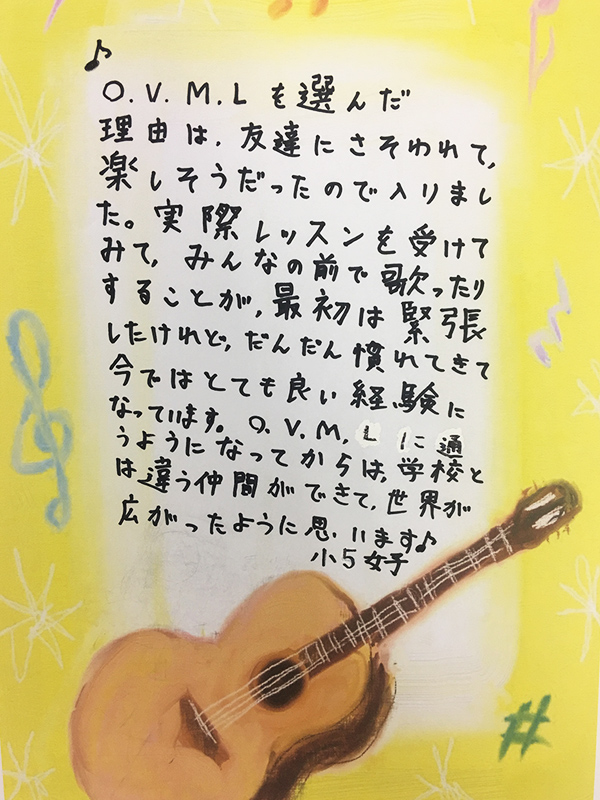 ♪
O.V.M.L を選んだ
理由は、友達にさそわれて、
楽しそうだったので入りまし
た。実際レッスンを受けて
みて、みんなの前で歌ったり
することが、最初は緊張
したけれど、だんだん慣れてきて
今ではとても良い経験に
なっています。O.V.M.L に通
うようになってからは、学校と
は違う仲間ができて、世界が
広がったように思います♪
小5女子